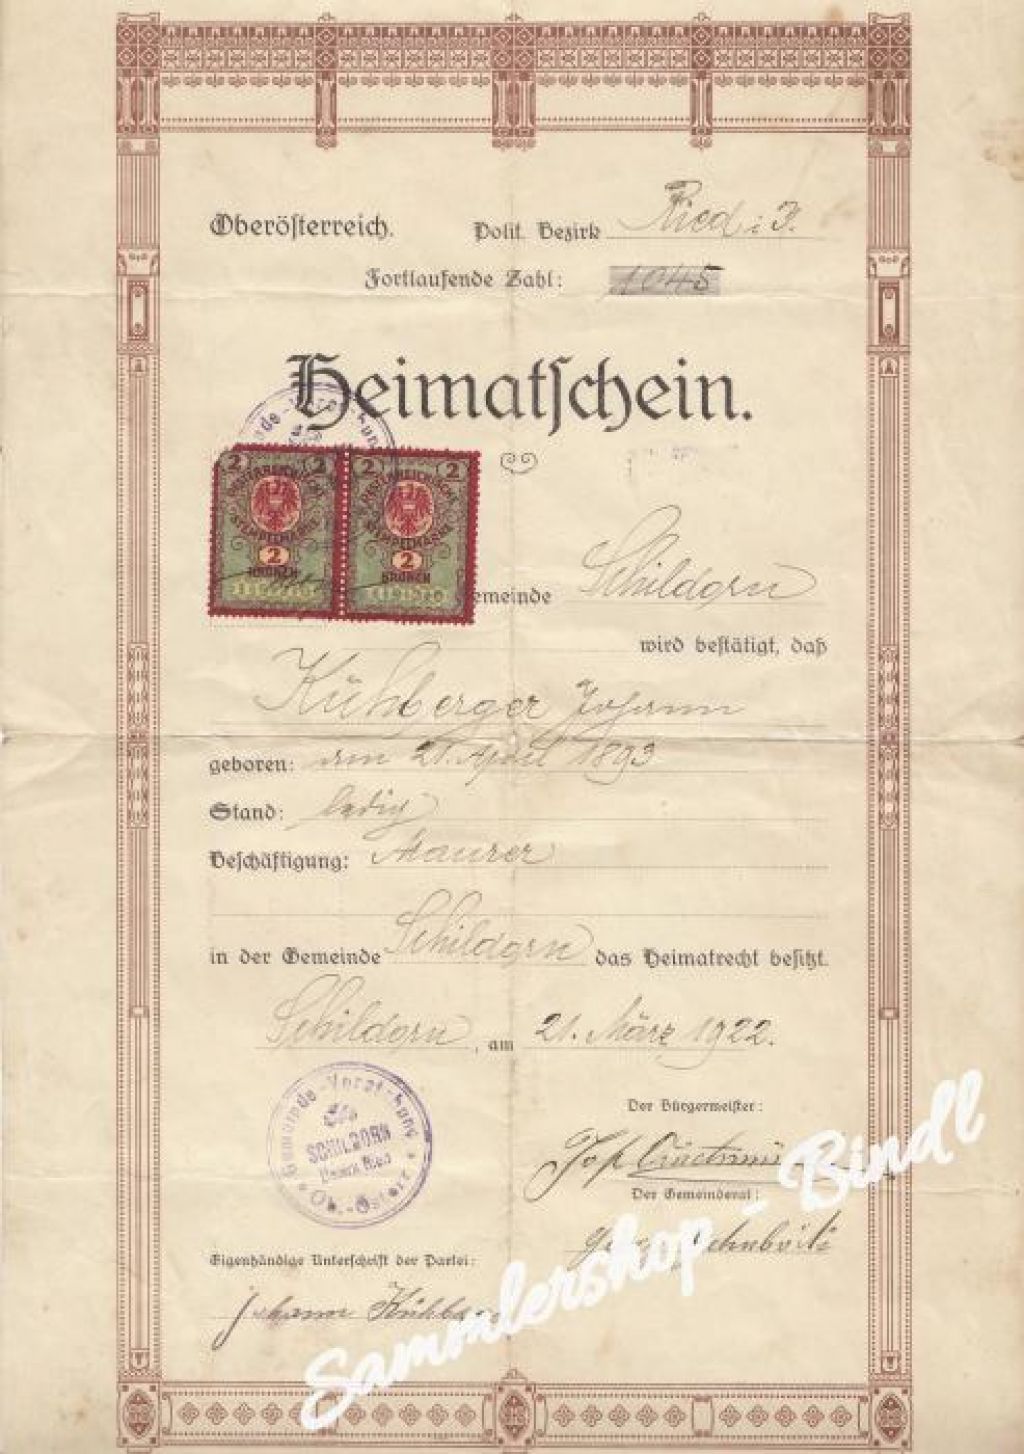 Oberösterreich. Polit. Bezirk Ried i. I.
Fortlaufende Zahl: 1045
Heimatschein.
2 2 2 2
ÖSTERREICHISCHE STEMPELMARKE ÖSTERREICHISCHE STEMPELMARKE
2 2
KRONEN KRONEN
Gemeinde Schildorn
wird bestätigt, daß
Kühberger Johann
geboren: am 21. April 1893
Stand: ledig
Beschäftigung: Maurer
in der Gemeinde Schildorn das Heimatrecht besitzt.
Schildorn, am 21. März 1922.
Gemeinde-Vorstehung
SCHILDORN
Bezirk Ried
Ob.-Österr.
Der Bürgermeister:
Jos.
Der Gemeinderat:
Eigenhändige Unterschrift der Partei:
Johann Kühberger
Sammlershop - Bindl